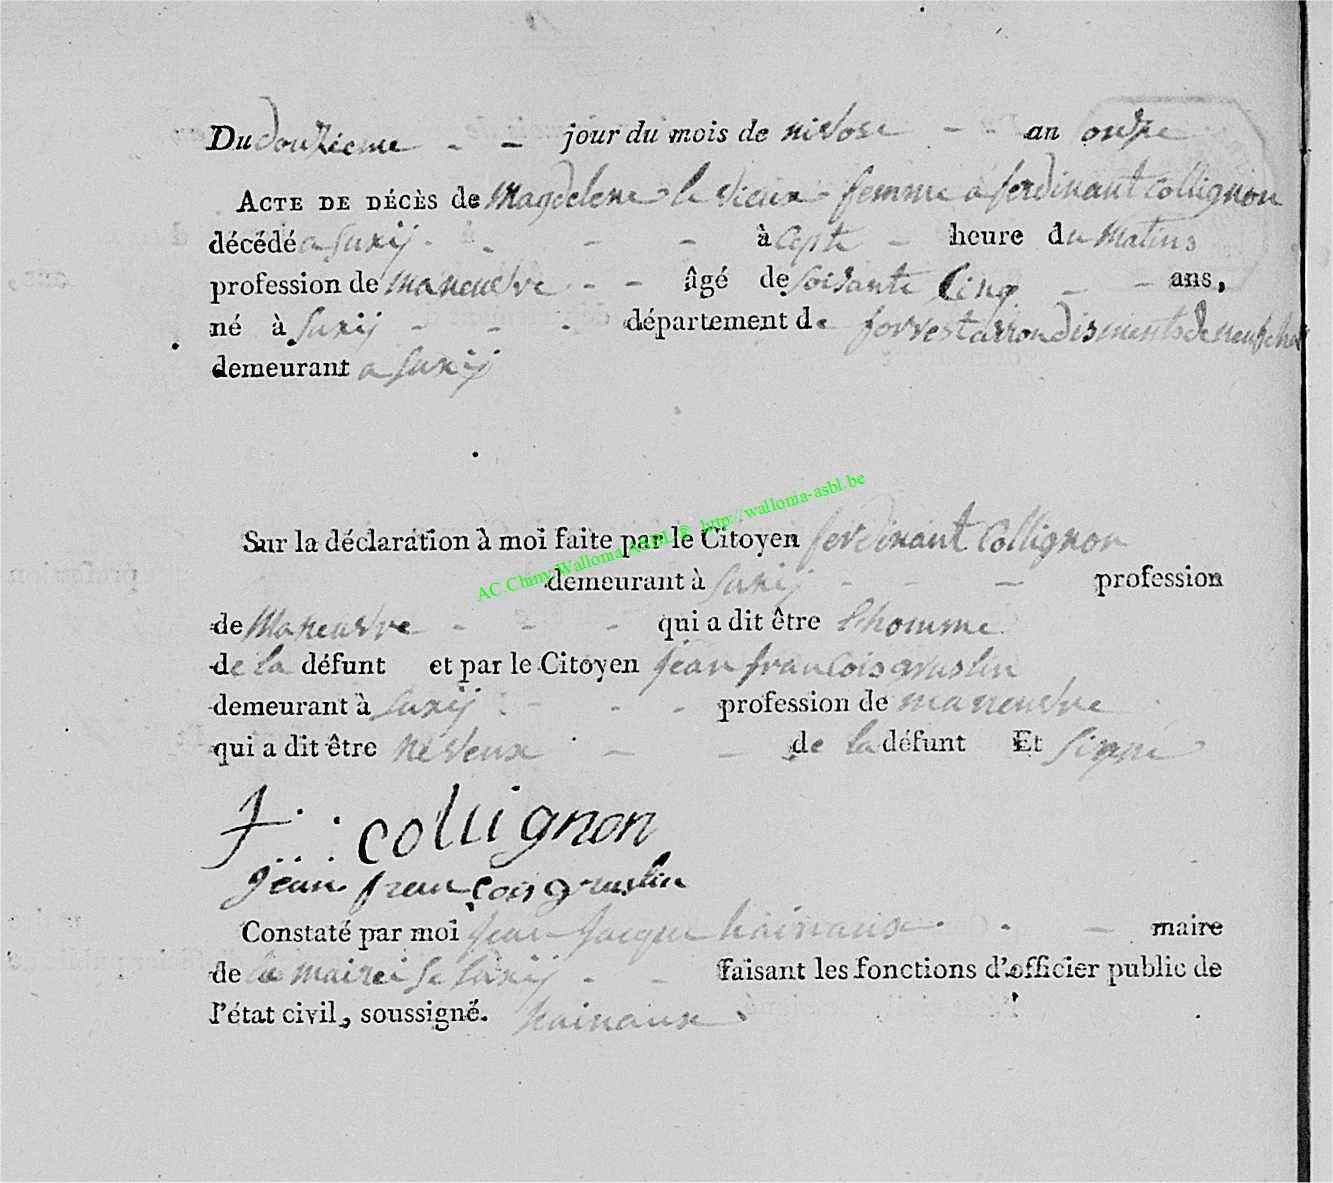 Du douzieme - - jour du mois de nivose - - an onze
ACTE DE DÉCÈS de Magdelene le vieux femme a ferdinant Collignon
décédé a Suxij - - - - à cept - heure du matins
profession de maneuvre - - âgé de soisante Cinq - - ans,
né à Suxij - - - département de forrest arrondisments de neufcha
demeurant a Suxij
Sur la déclaration à moi faite par le Citoyen ferdinant Collignon
AC.Chiny Walloma ASBL © http://walloma-asbl.be
demeurant à Suxij - - - profession
de Maneuvre - - - qui a dit être l'homme
de la défunt et par le Citoyen jean francois gruslin
demeurant à Suxij - - - profession de maneuvre
qui a dit être neveux - - de la défunt Et signé
F : collignon
jean francois gruslin
Constaté par moi jean jacque hainaux - - maire
de la mairei de Suxij - - faisant les fonctions d'officier public de
l'état civil, soussigné. hainaux